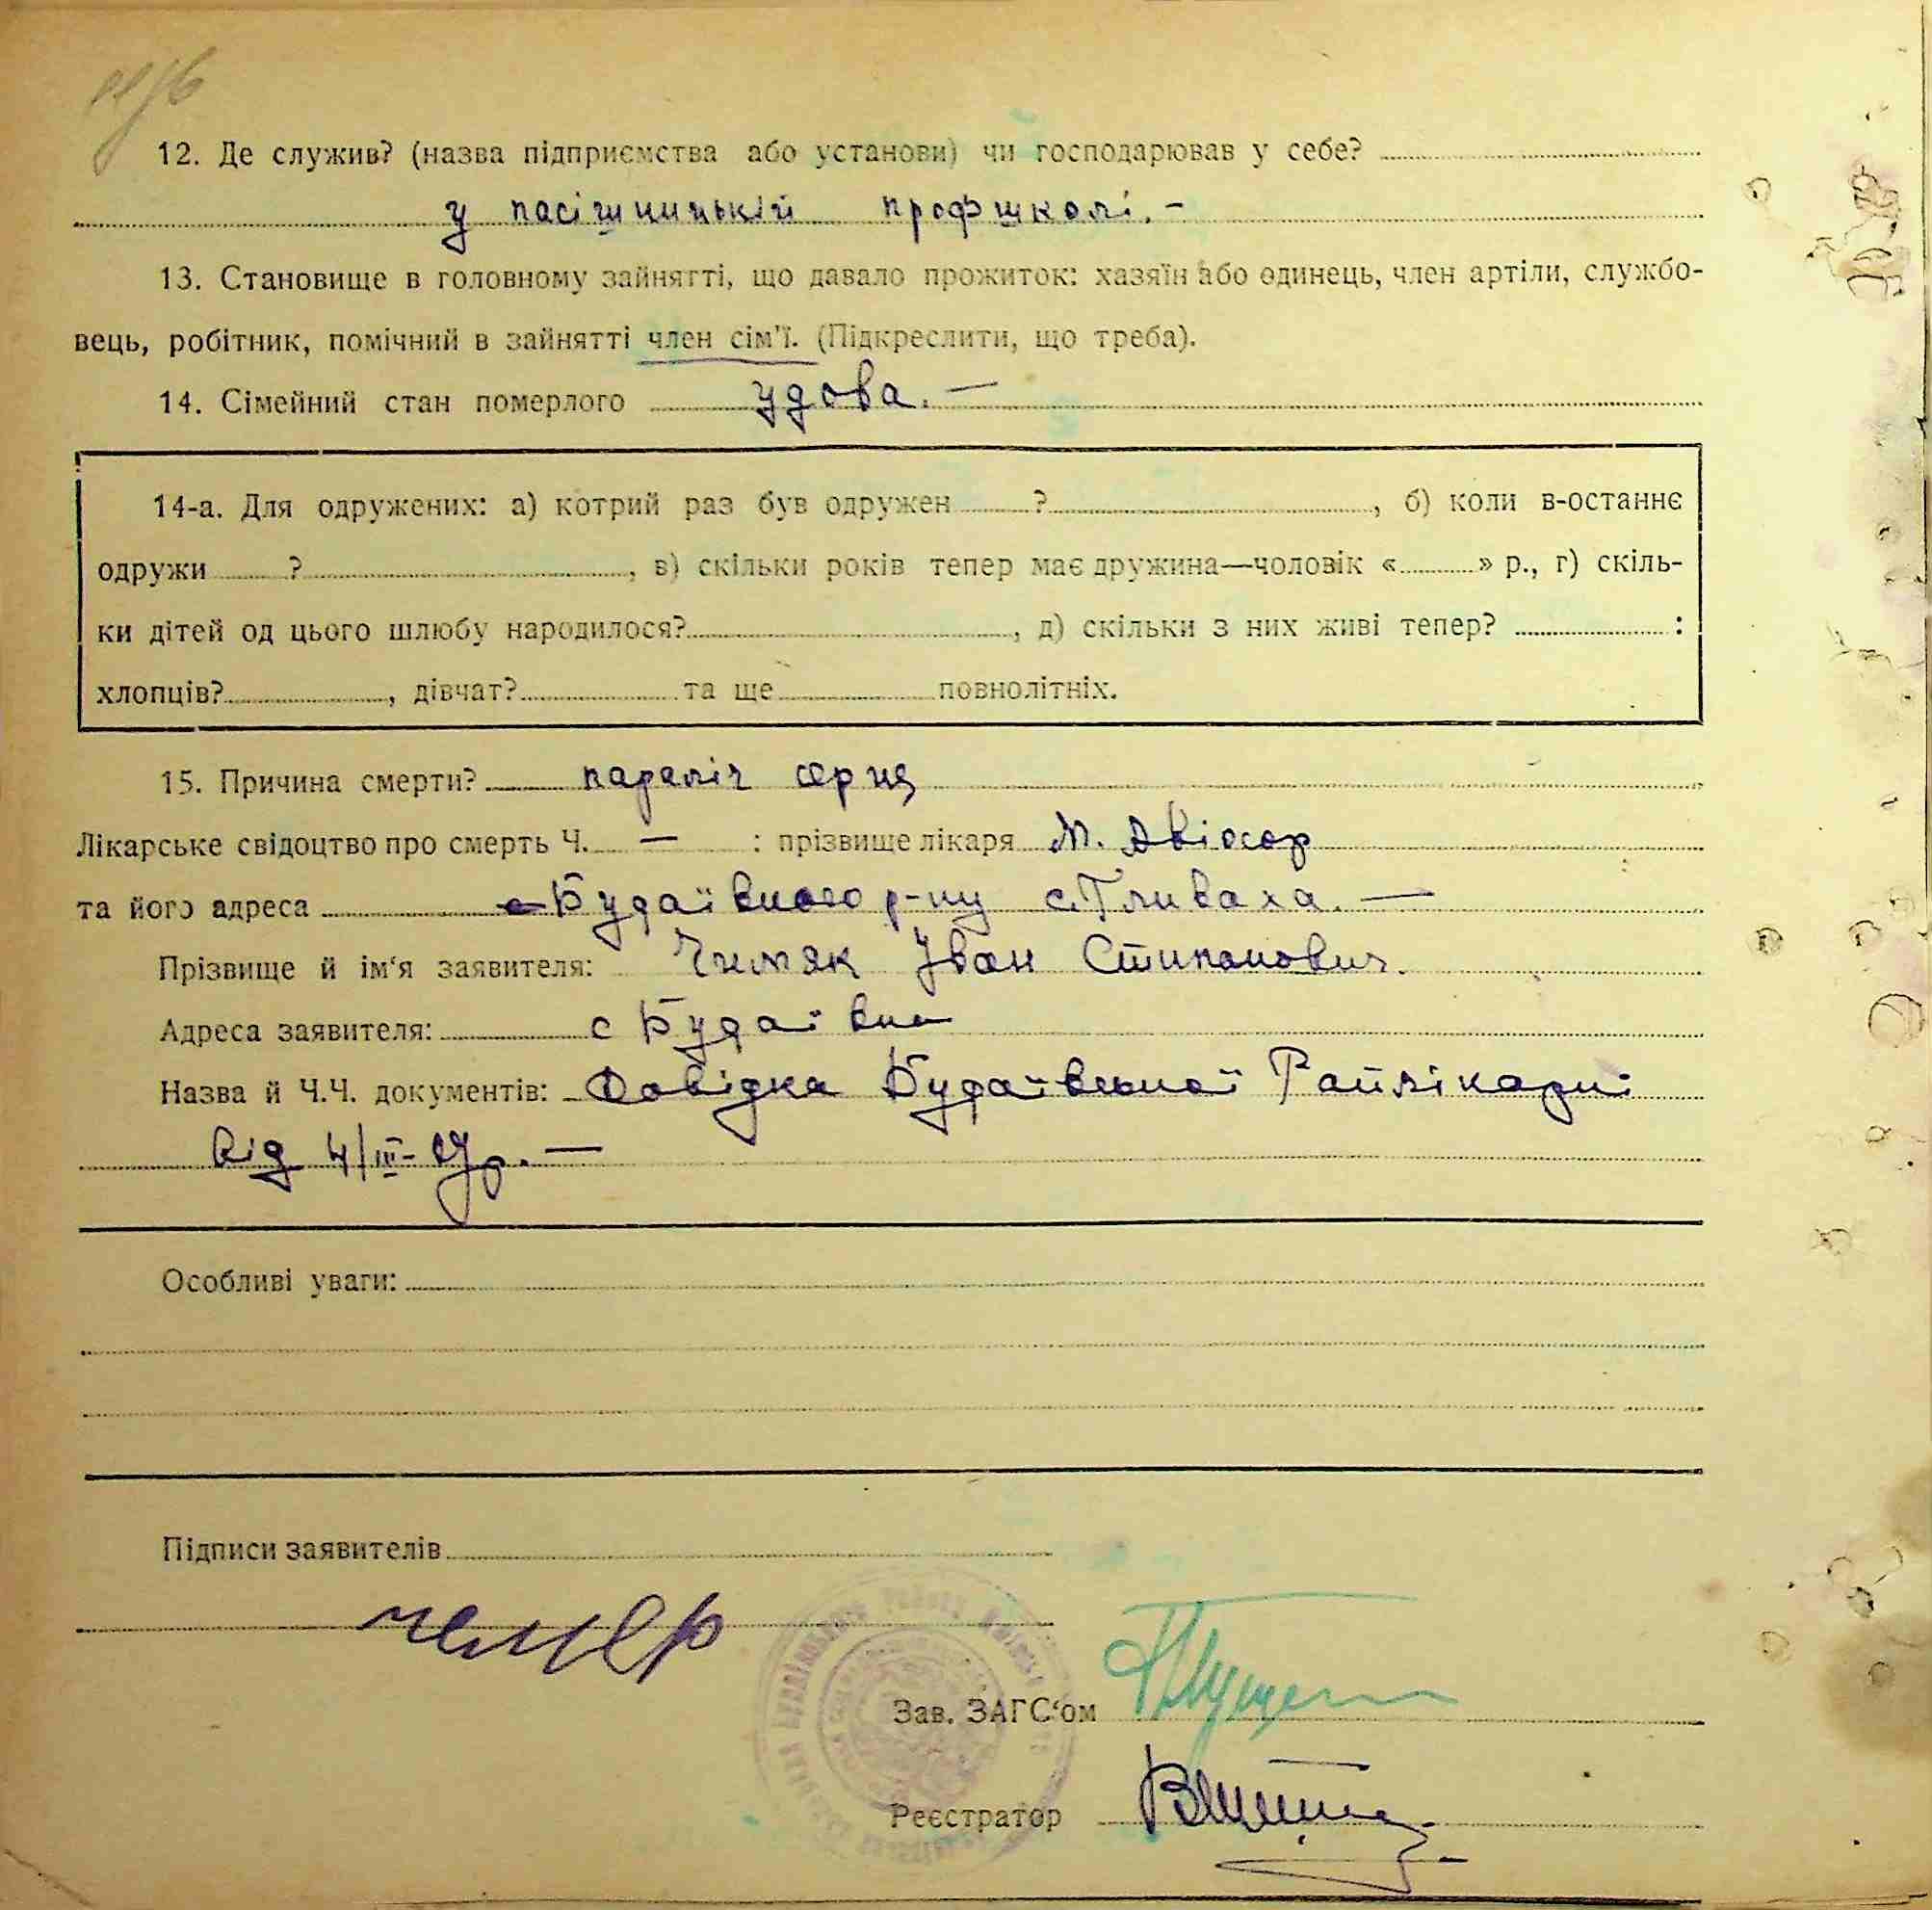 12. Де служив? (назва підприємства або установи) чи господарював у себе?
у пасішницькій профшколі. –
13. Становище в головному зайнятті, що давало прожиток: хазяїн або одинець, член артіли, службо-
вець, робітник, помічний в зайнятті член сім'ї. (Підкреслити, що треба).
14. Сімейний стан померлого удова. —
14-а. Для одружених: а) котрий раз був одружен ? , б) коли в-останнє
одружи ? , в) скільки років тепер має дружина—чоловік « » р., г) скіль-
ки дітей од цього шлюбу народилося? , д) скільки з них живі тепер? :
хлопців? , дівчат? та ще повнолітніх.
15. Причина смерти? параліч серця
Лікарське свідоцтво про смерть Ч. — : прізвище лікаря М.
та його адреса Будаївського р-ну с. Гливаха. —
Прізвище й ім'я заявителя: Іван Стипанович.
Адреса заявителя: с Будаївка
Назва й Ч.Ч. документів: Довідка Будаївської Райлікарні
від 4/III-
Особливі уваги:
Підписи заявителів
Зав. ЗАГС'ом
Реєстратор